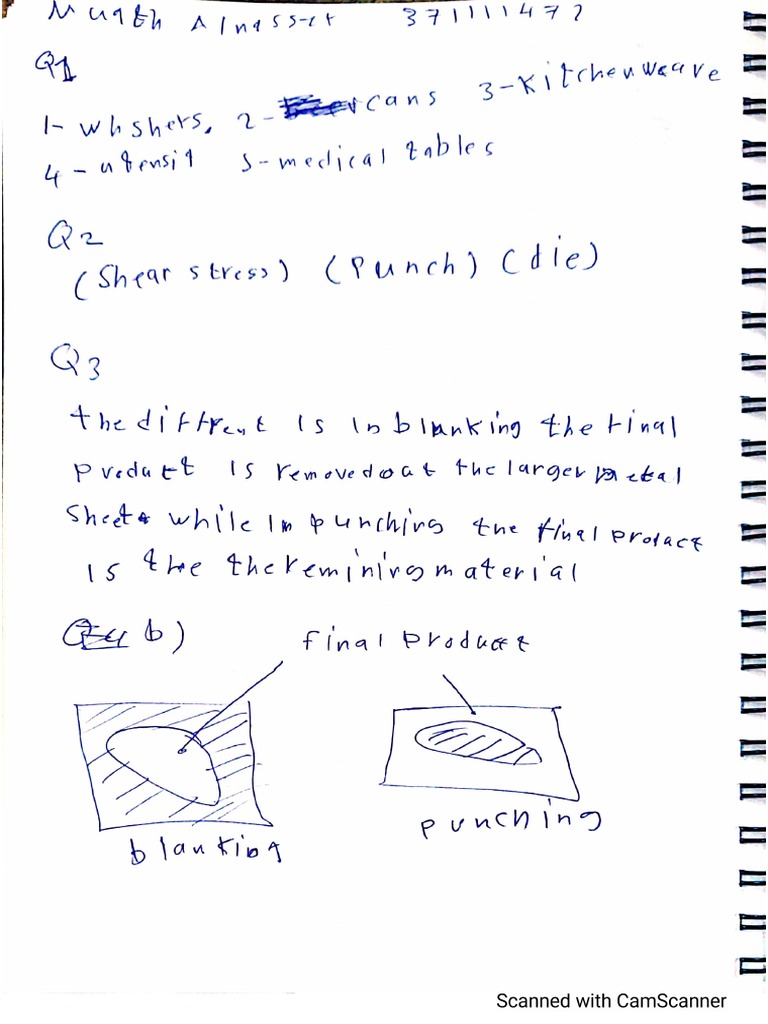 Muath Alnasser 371111472
Q1
1- whshers. 2- cans 3-Kitchenweare
4 - utensil 5-medical tables
Q2
(Shear stress) (Punch) (die)
Q3
the diffrent is in blanking the final
product is removed out the larger metal
sheet while in punching the final product
is the the remining material
b) final product
blanking
punching
Scanned with CamScanner